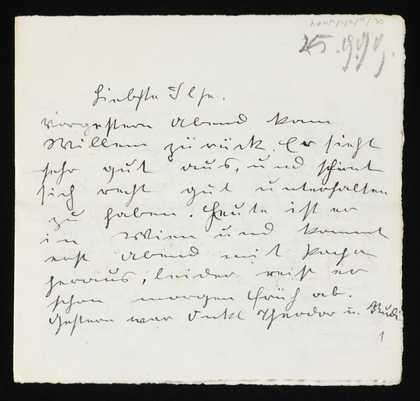 25.9.99.
Liebste Ilse.
Vorgestern Abend kam
Willem zurück. Er sieht
sehr gut aus, und scheint
sich recht gut unterhalten
zu haben. Heute ist er
in Wien und kommt
erst Abend mit Papa
heraus, leider reist er
schon morgen früh ab.
Gestern war Onkl Theodor u. Rudi
1